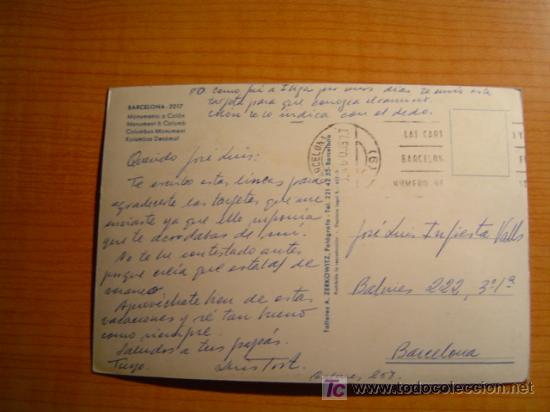 BARCELONA - 2017
Monumento a Colón
Monument à Colomb
Columbus Monument
Kolumbus Denkmal
PD como fui a por unos días te envio esta
tarjeta para que conozca el
Colón te lo indica con el dedo.
Querido José Luis:
Te escribo estas líneas para
agradecerte las tarjetas que me
enviaste ya que ello suponía
que te acordabas de mí.
No te he contestado antes
porque creía que estabas de
veraneo.
Aprovechate bien de estas
vacaciones y sé tan bueno
como siempre.
Saludos a tus papás.
Tuyo. Luis Tort
Talleres A. ZERKOWITZ, Fotógrafo - Tel. 221 42 35 - Barcelona
BARCELONA
LAS CART
BARCELON
NUMERO
(6)
José Luis Infiesta Valls
Balmes 222, 3º 1ª
Barcelona
todocoleccion
www.todocoleccion.net